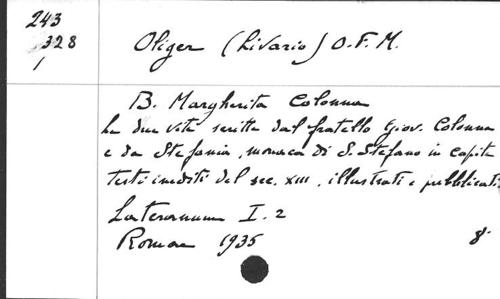 243
328
1
Oliger (Livario) O.F.M.
B. Margherita Colonna
Le due vite scritte dal fratello Giov. Colonna
e da Stefania, monaca di S. Stefano in Capite
testi inediti del sec. XIII, illustrati e pubblicati
Lateranum I. 2
Romae 1935 8°